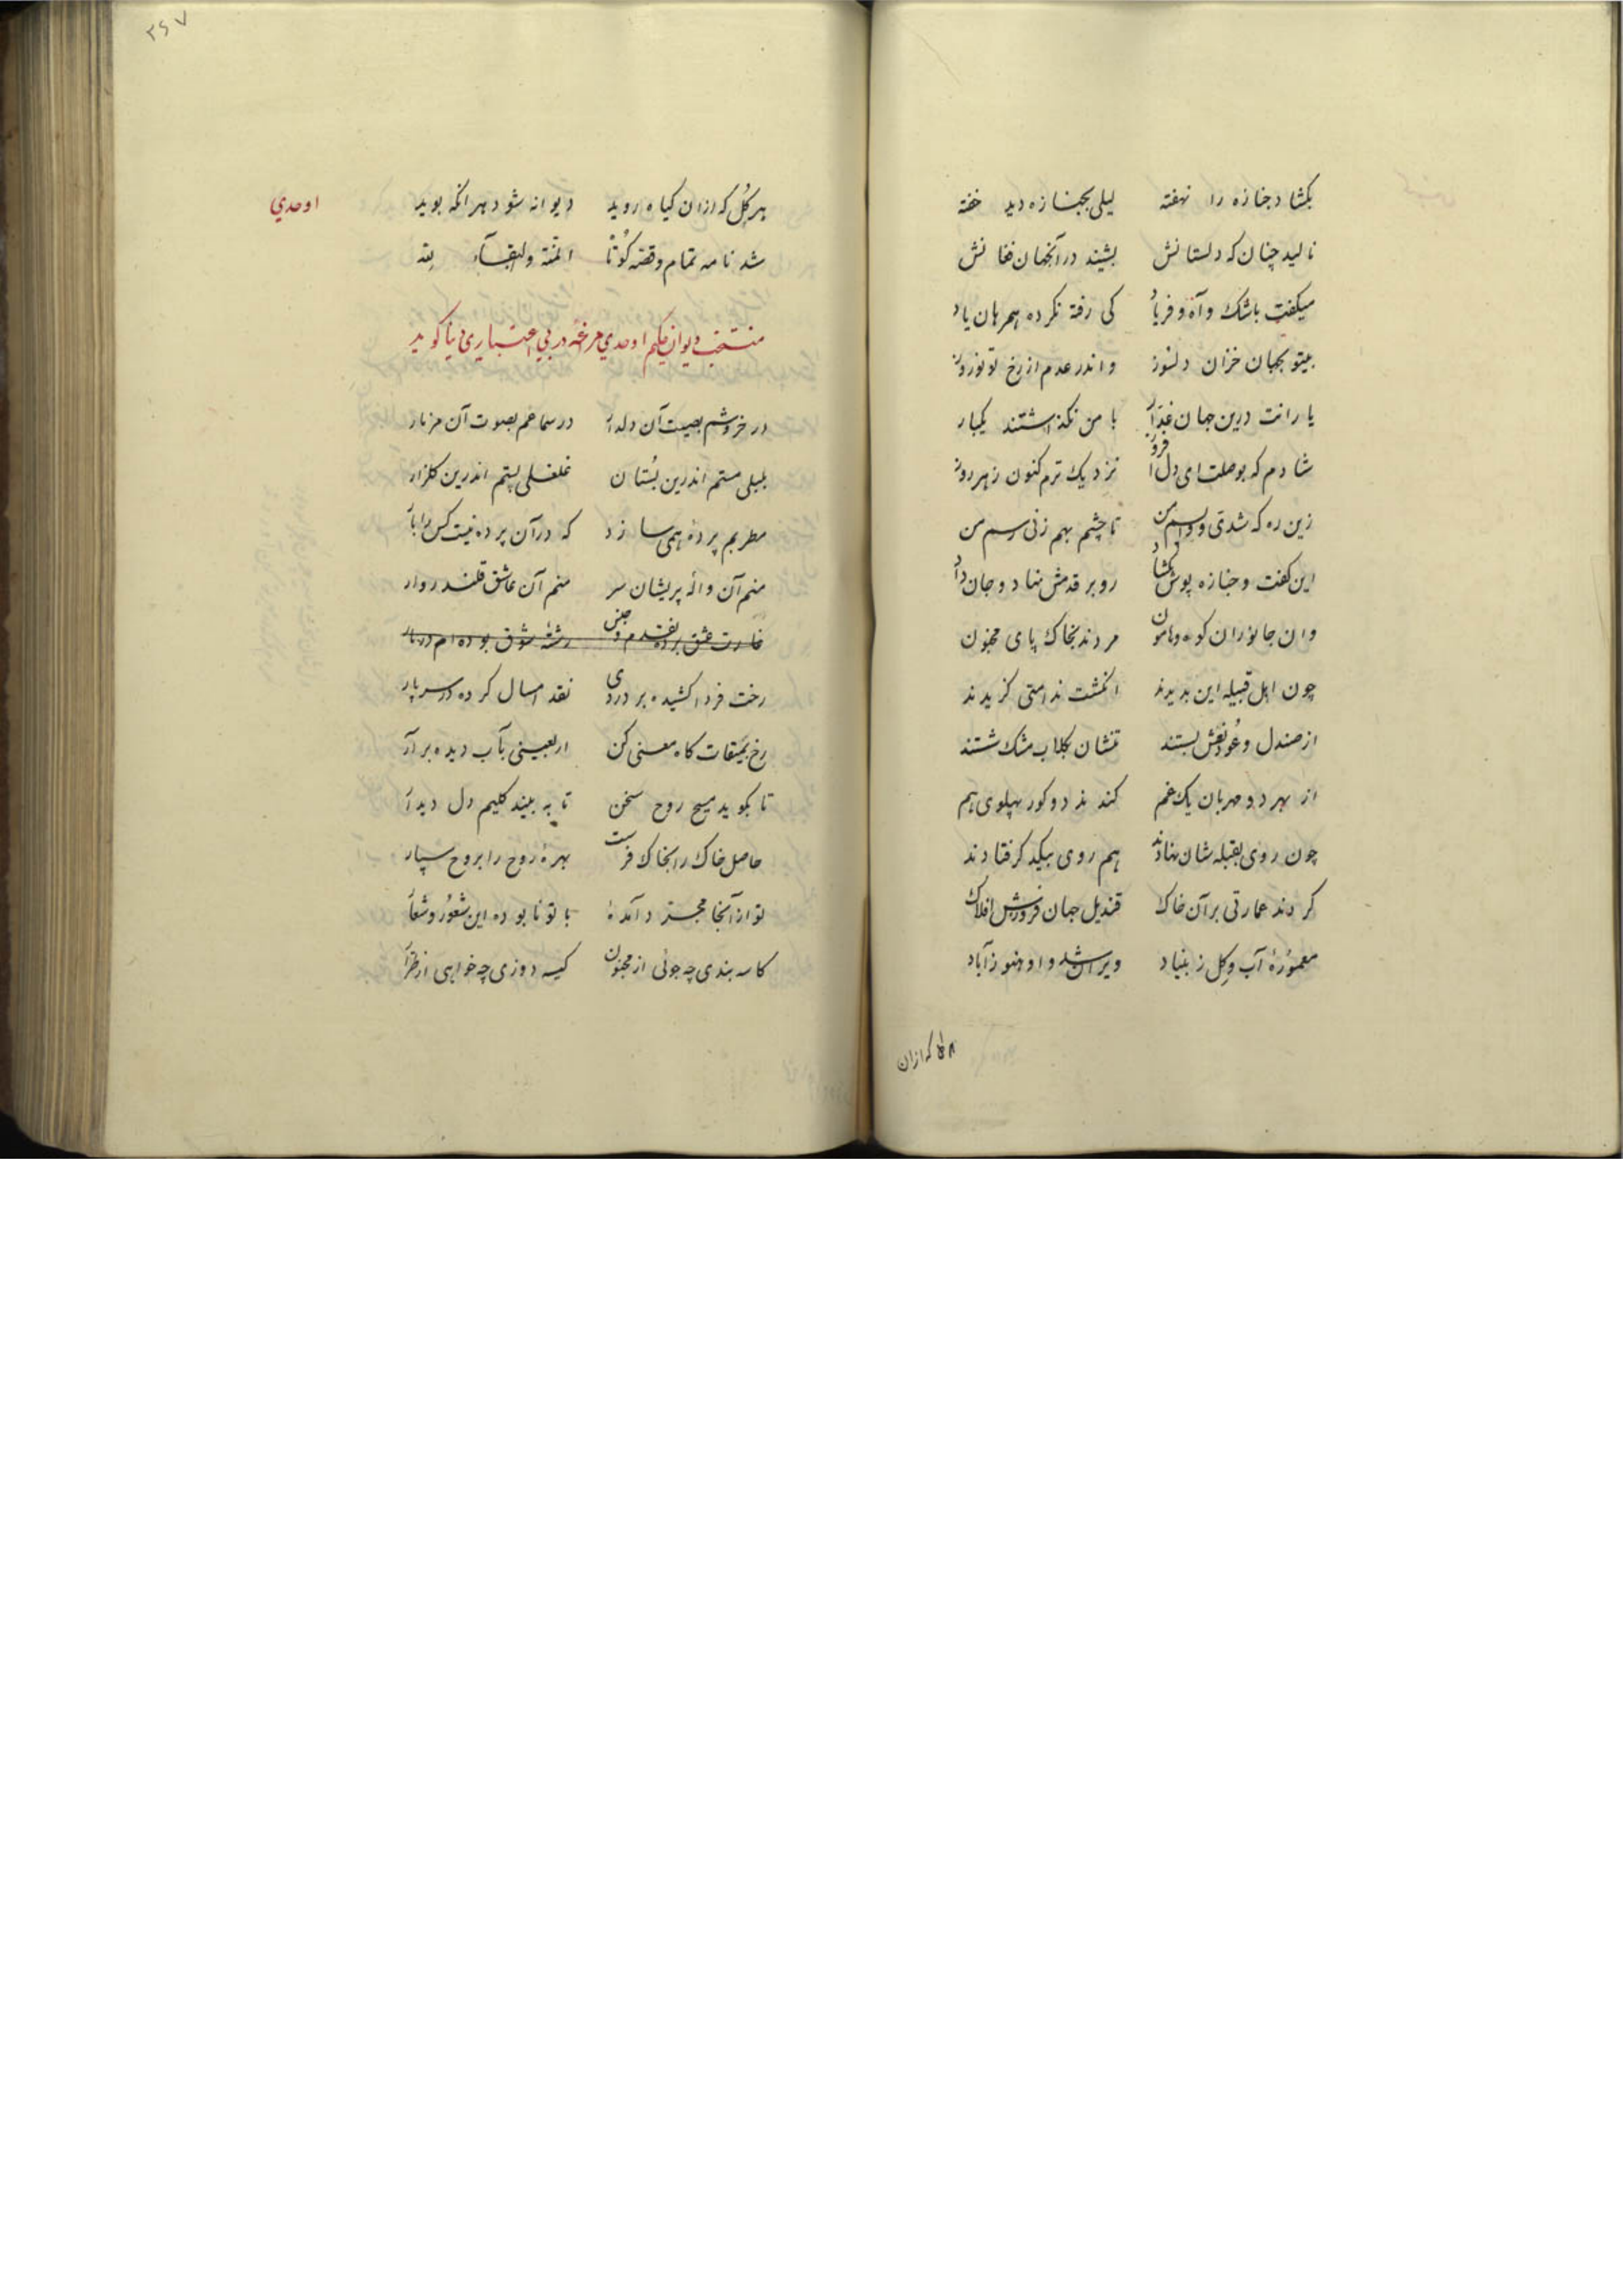 بکشاد جنازه را نهفته لیلی بجنازه دید خفته
نالید چنان که دلستانش بشیند در آنجهان فغانش
میکفت باشک و آه و فریاد کی رفته نکرده همرهان یاد
بیتو بجهان خزان دلسوز و اندر عدم از رخ تو نوروز
یارانت درین جهان غدار با من نکذاشتند یکبار
شادم که بوصلت ای دل افروز نزدیک ترم کنون ز هر روز
زین ره که شدی و وا پسم من تا چشم بهم زنی رسم من
این کفت و جنازه پوش بکشاد رو بر قدمش نهاد و جان داد
وان جانوران کوه و هامون مردند بخاک پای مجنون
چون اهل قبیله این بدیدند انکشت ندامتی کزیدند
از صندل و عود نعش بستند تنشان بکلاب مشک شستند
از بهر دو مهربان یک غم کندند دو کور پهلوی هم
چون روی بقبله شان نهادند هم روی بیکدکر فتادند
کردند عمارتی بر آن خاک قندیل جهان فروزش افلاک
معمورهٔ آب و کل ز بنیاد ویران شد و او هنوز آباد
کل که ازان
۳۶۷
اوحدي
هر کل که ازان کیاه روید دیوانه شود هر انکه بوید
شد نامه تمام و قصه کوتاه المنة والبقآء لله
منتخب دیوان حکیم اوحدي مراغه در بي اعتباري دنیا کوید
در خروشم بصیت آن دلدار در سماعم بصوت آن مزمار
بلبلی مستم اندرین بستان غلغلی پستم اندرین کلزار
مطربم پردهٔ همی سازد که در آن پرده نیست کس را بار
منم آن واله پریشان سر منم آن عاشق قلندروار
غارت عشق برده نقدم و جنس رشتهٔ شوق بوده ام در بار
رخت فردا کشیده بر در دی نقد امسال کرده در سر پار
رخ بمیقات کاه معنی کن اربعینی بآب دیده برآر
تا بکوید مسیح روح سخن تا به بیند کلیم دل دیدار
حاصل خاک را بخاک فرست بهرهٔ روح را بروح سپار
تو از آنجا مجرد آمدهٔ با تو نابوده این شعور و شعار
کاسه بندی چه جوئی از مجنون کیسه دوزی چه خواهی از طرار